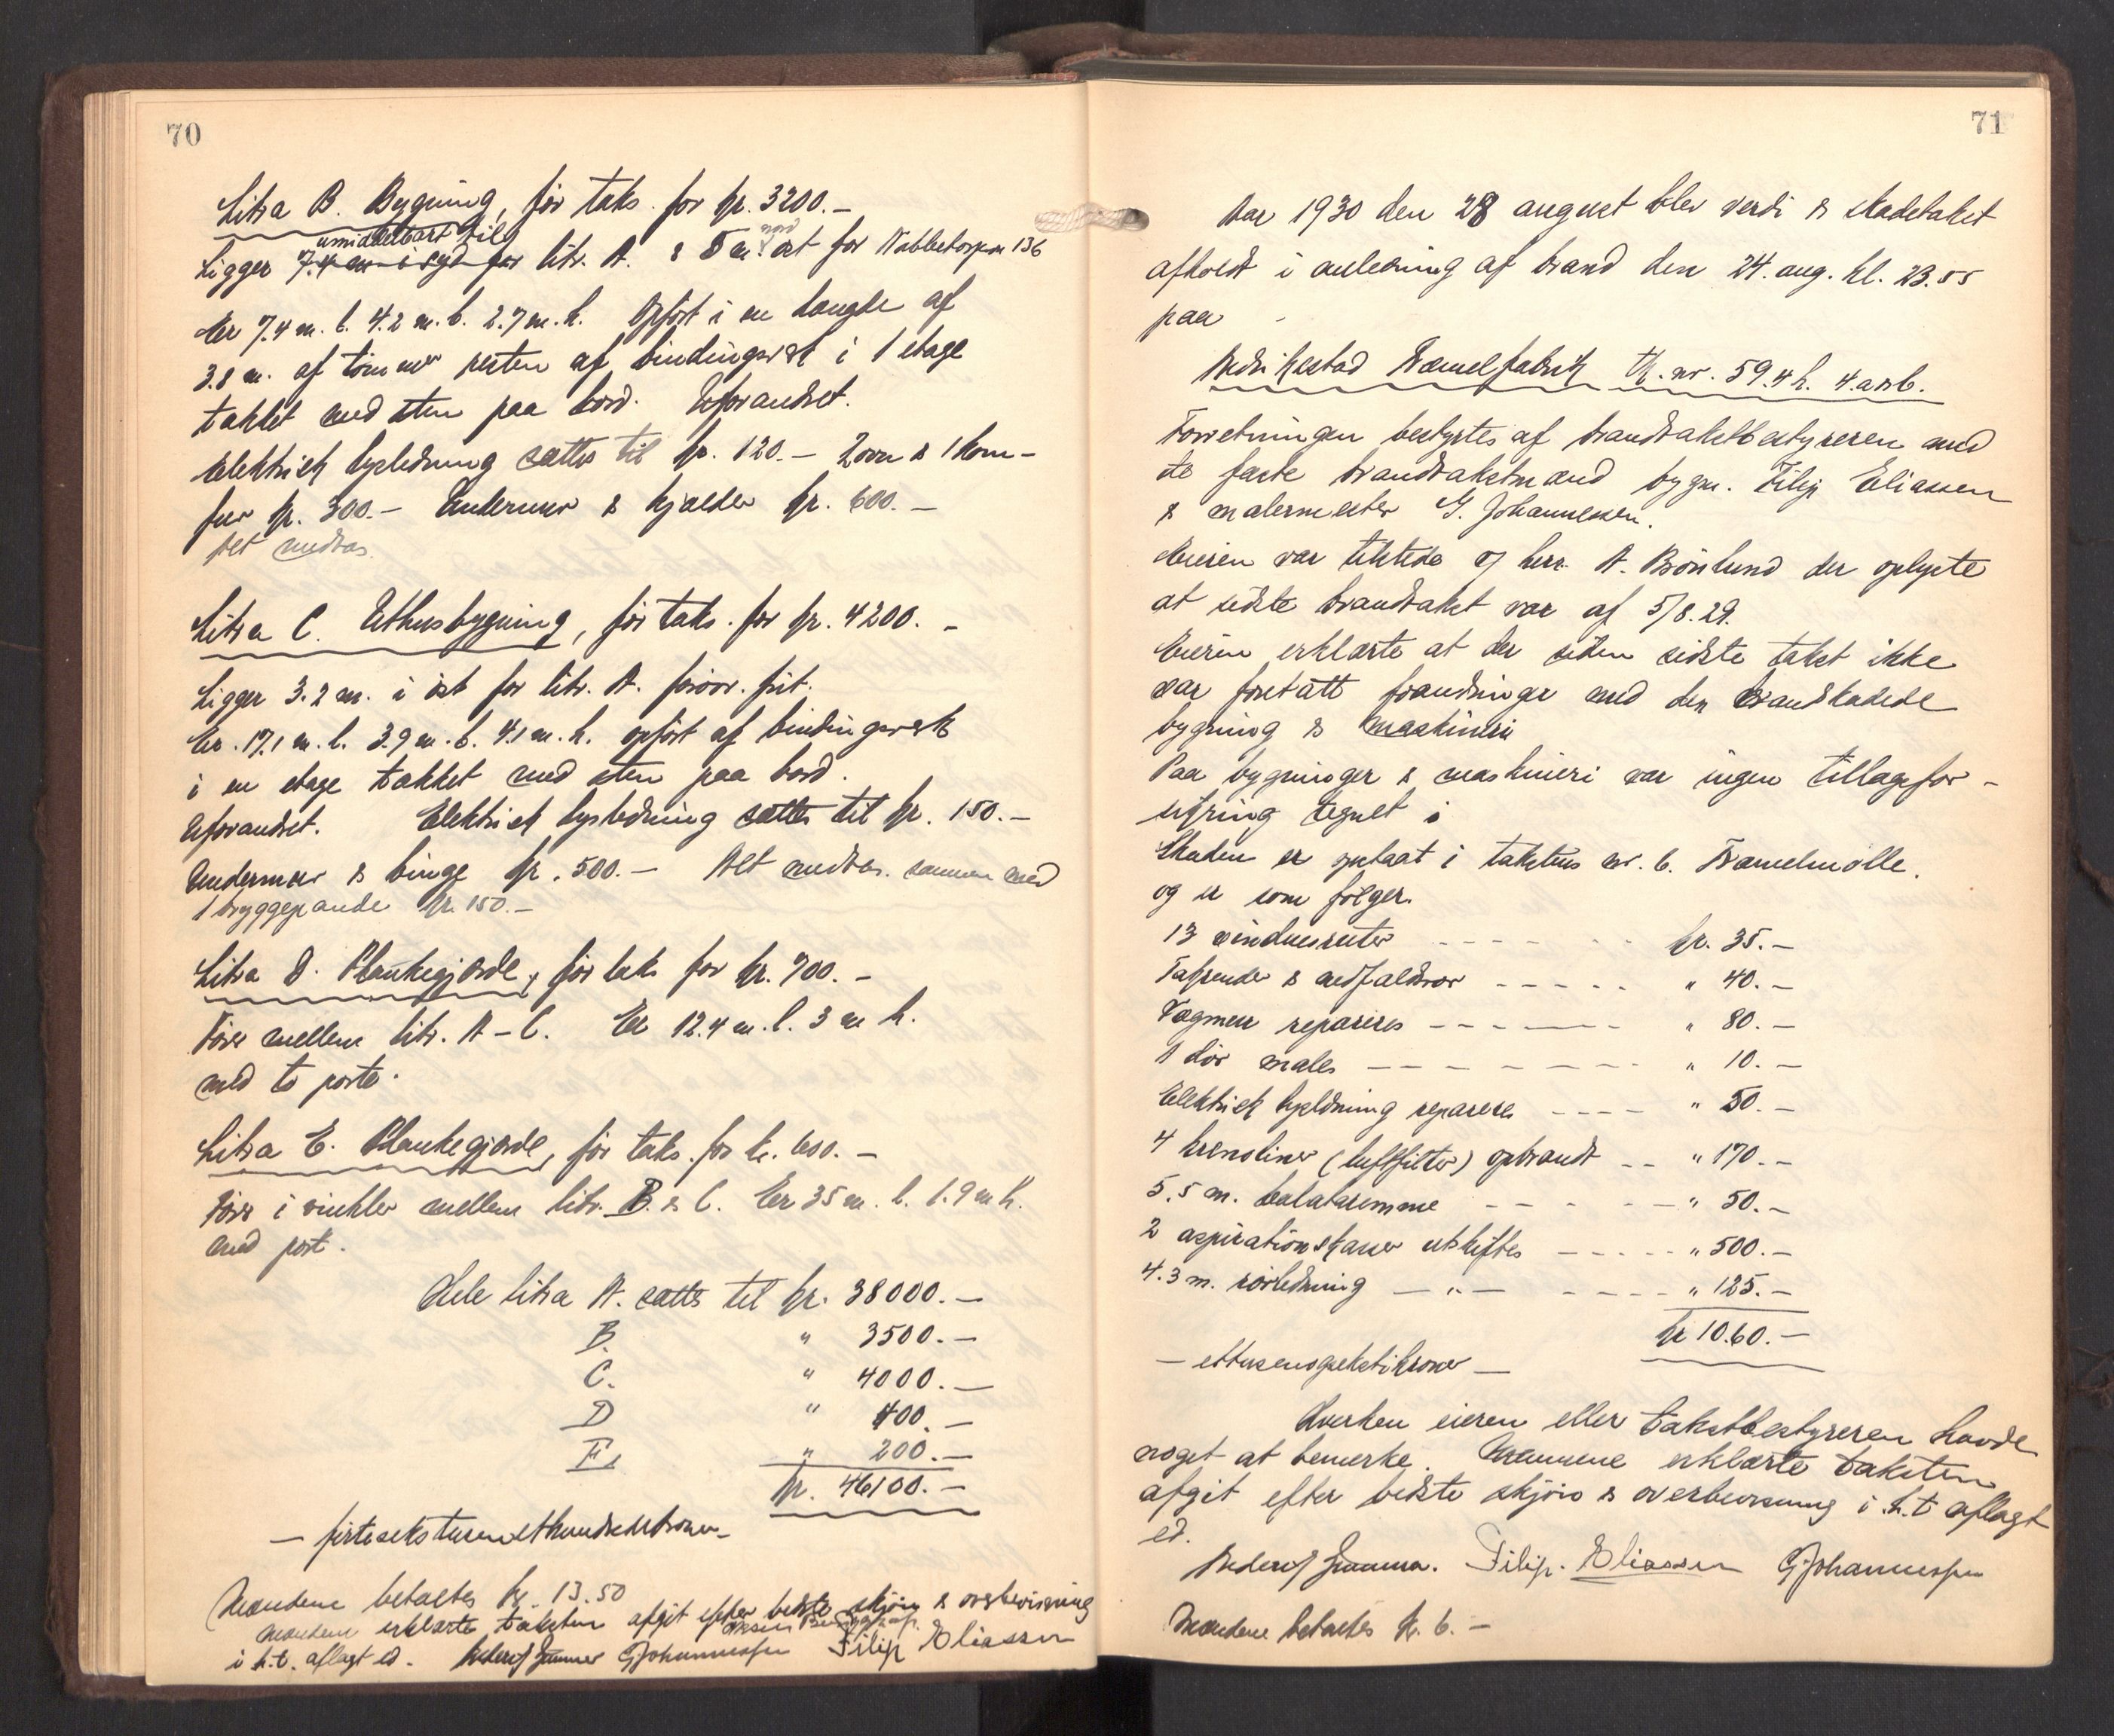 70
Litra B. Bygning, før taks. for kr. 3200.-
umiddelbart til nord
Ligger 7.4 m i syd for litr. A. & 5 m. øst for Nabbetorpvn 136
Er 7.4 m. l. 4.2 m. b. 2.7 m. h. Opført i en længde af
3.8 m. af tømmer resten af bindingsverk i 1 etage
tækket med sten paa bord. Uforandret.
Elektrisk lysledning sættes til kr. 120.- 2 ovn & 1 kom-
fur kr. 300.- Undermur & kjælder kr. 600.-
Alt medtas.
Litra C. Uthusbygning, før taks. for kr. 4200.-
Ligger 3.2 m. i øst for litr. A. forøvr. frit.
Er. 17.1 m. l. 3.9 m. b. 4.1 m. h. opført af bindingsverk
i en etage tækket med sten paa bord.
Uforandret. Elektrisk lysledning sættes til kr. 150.-
Undermur & binge kr. 500.- Alt medtas. sammen med
1 bryggepande kr. 150.-
Litra D. Plankegjærde, før taks for kr. 700.-
Fører mellem litr. A - C. Er 12.4 m. l. 3 m h.
med to porte.
Litra E. Plankegjærde, før taks. for kr. 600.-
Fører i vinkler mellem litr. B. & C. Er 35 m. l. 1.9 m h.
med port.
Hele litra A. sættes til kr. 38000.-
B. " 3500.-
C. " 4000.-
D " 400.-
E. " 200.-
kr. 46100.-
- førtisekstusenethundrekroner -
Mændene betaltes kr. 13.50
Mændene erklærte taksten afgit efter bedste skjøn & overbevisning
i h.t. aflagt ed. GJohannessen Filip Eliassen
71
Aar 1930 den 28 august blev verdi & skadetakst
afholdt i anledning af brand den 24. aug. kl. 23.55
paa
Fredrikstad Kræmmelfabrik tk. nr. 59. 4 h. 4. arb.
Forretningen bestyrtes af brandtakstbestyreren med
de faste brandtakstmænd bygm. Filip Eliassen
& malermester G. Johannessen.
Eieren var tilstede v/ herr A. Brønlund der oplyste
at sidste brandtakst var af 5/8.29.
Eieren erklærte at der siden sidste takst ikke
var foretatt forandringer med den brandskadede
bygning & maskineri
Paa bygninger & maskineri var ingen tillægsfor-
sikring tegnet i
Skaden er opstaat i taksthus nr. 6.
og er som følger.
13 vinduesruter kr. 35.-
Takrender & nedfaldsrør " 40.-
Vægmur repareres " 80.-
1 dør males " 10.-
Elektrisk lysledning repareres " 50.-
4 krenoliner (luftfilter) opbrændt " 170.-
5.5 m. balataremme " 50.-
2 aspirationskasser utskiftes " 500.-
4.3 m. rørledning - " - " 125.-
kr 1060.-
- ettusenogsekstikroner -
Hverken eieren eller takstbestyreren havde
noget at bemerke. Mændene erklærte taksten
afgit efter bedste skjøn & overbevisning i h.t aflagt
ed.
Filip. Eliassen GJohannessen
Mændene betaltes kr. 6.-